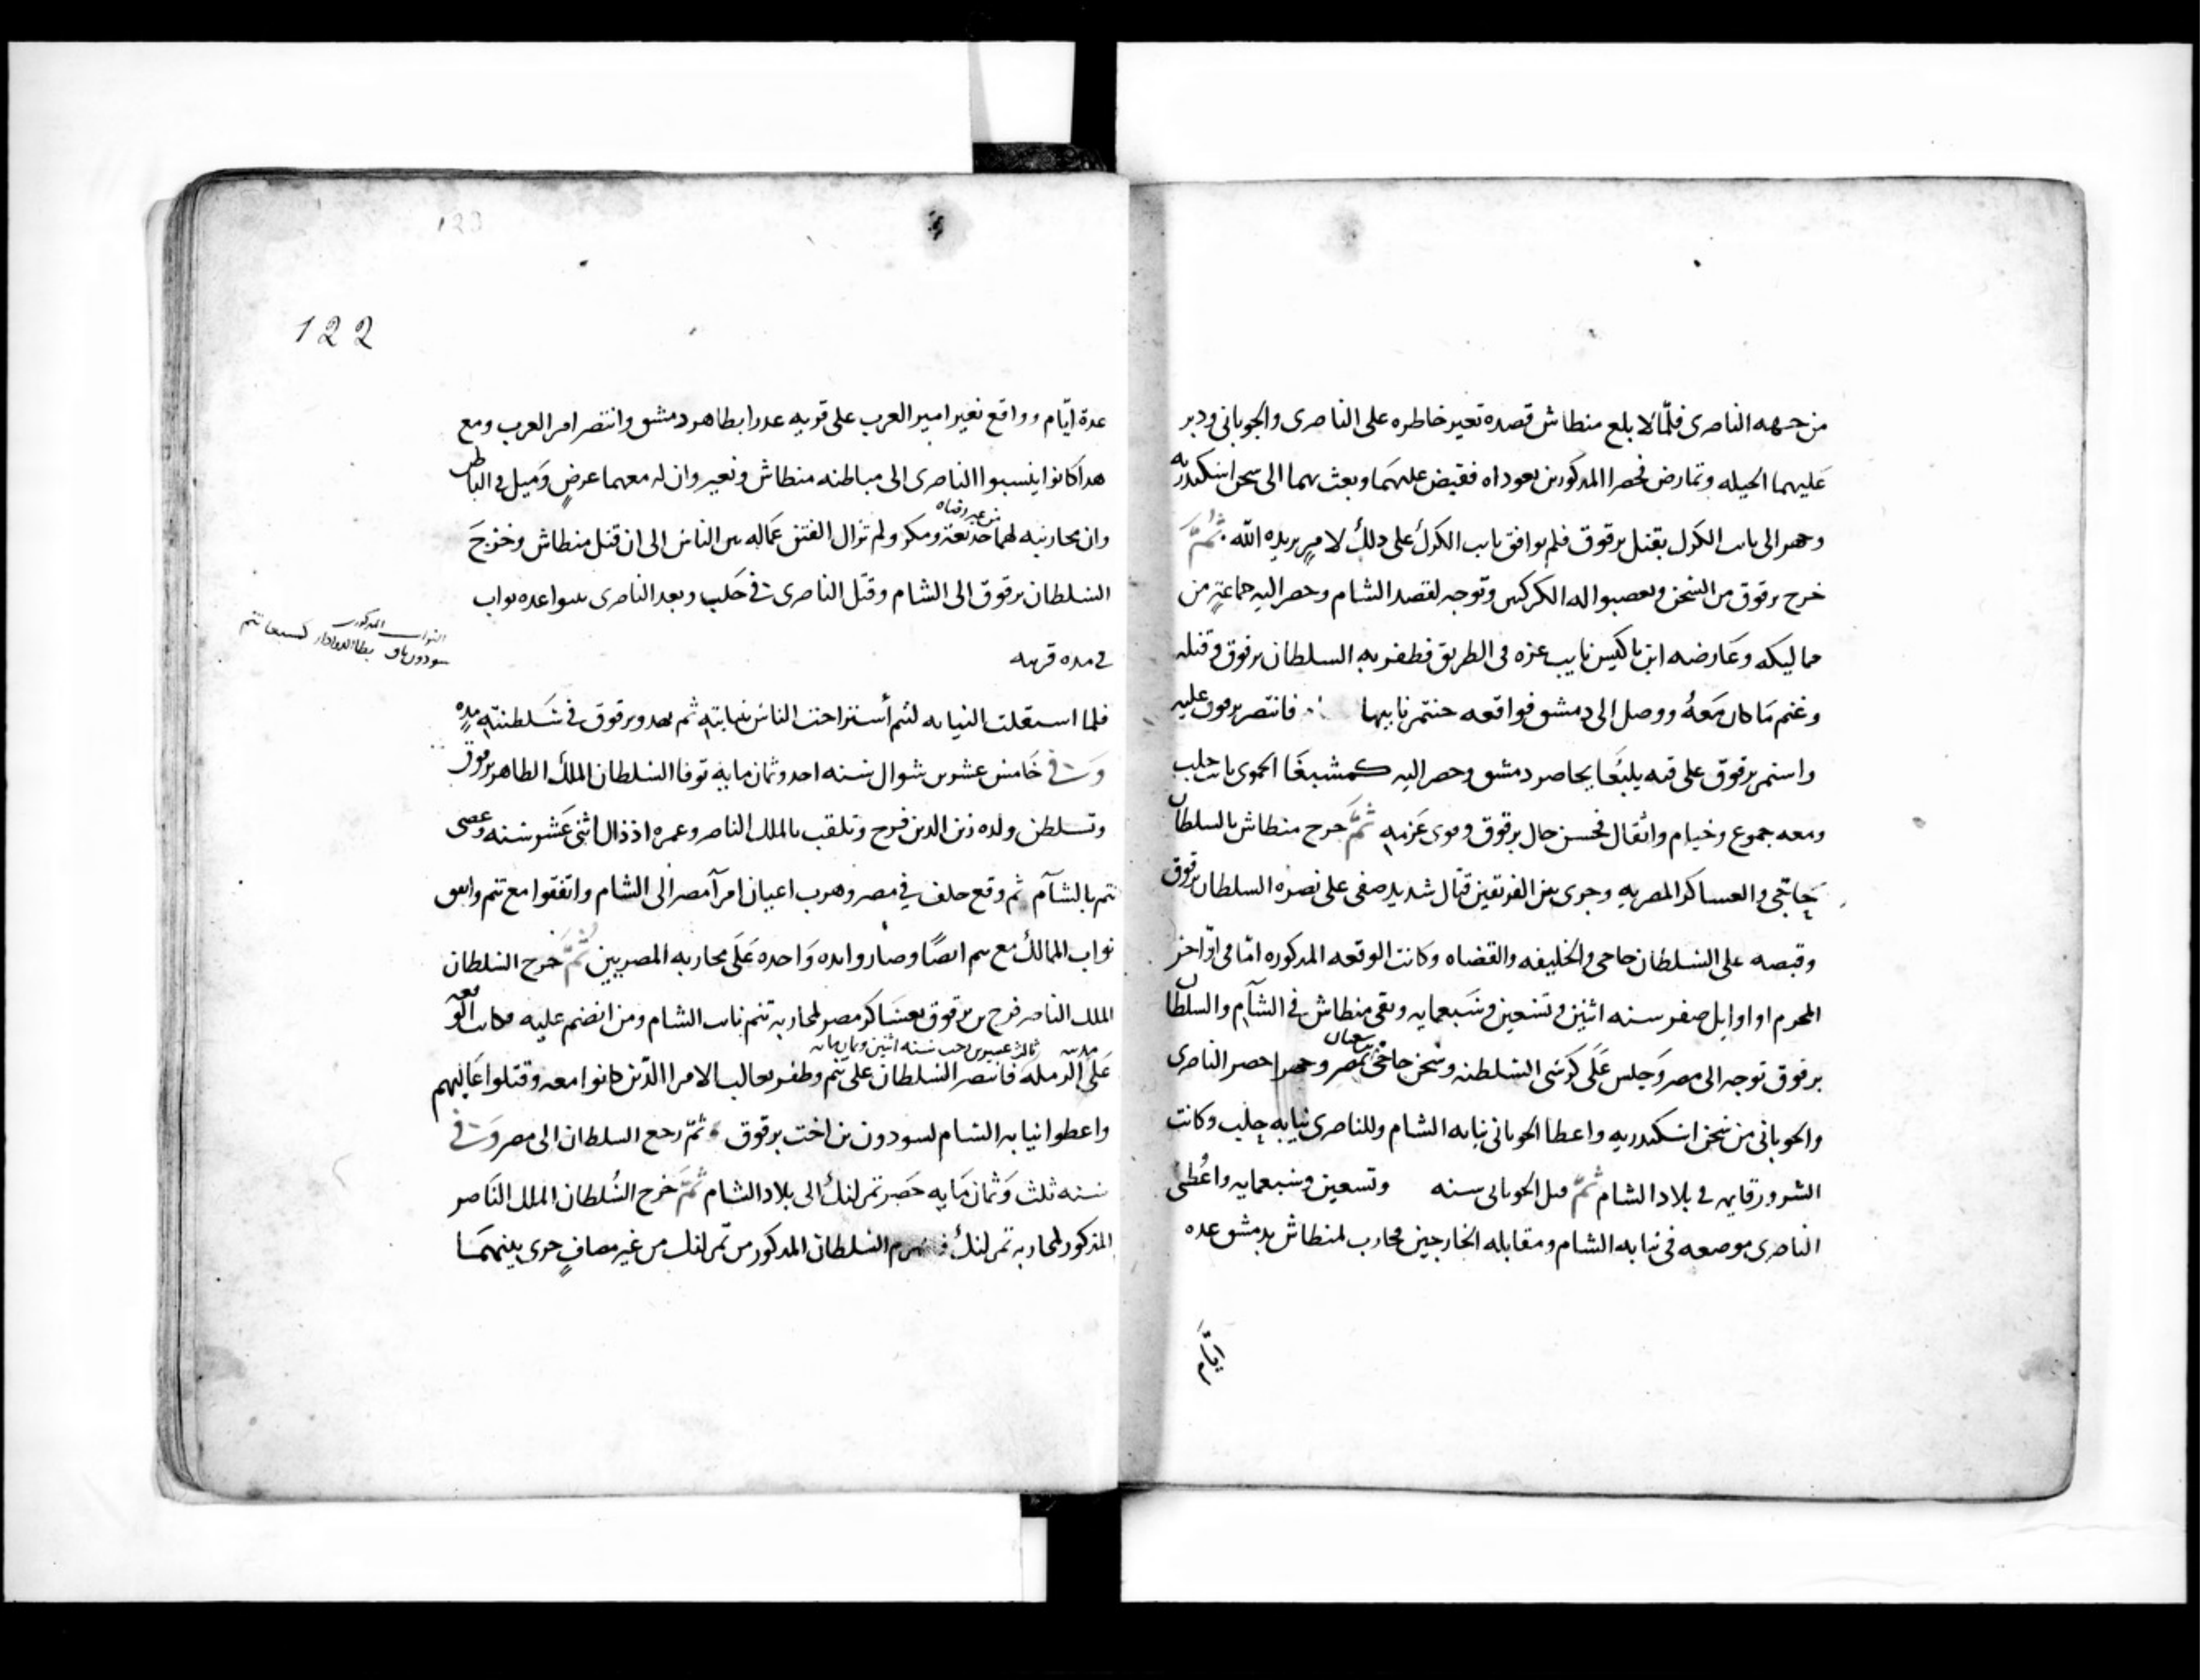 من جهه الناصرى فلما لا بلع منطاش قصده تعير خاطره على الناصرى والجوبانى ودبر
عليهما الحيله وتمارض فحصرا المدكورين بعوداه فقبض عليهما وبعث بهما الى سجن اسكندريه
وجهر الى نايب الكرك بقتل برقوق فلم يوافق نايب الكرك على دلك لامرٍ يريده الله ثمّ
خرج برقوق من السجن وتعصبوا له الكركيين وتوجه لقصد الشام وحصر اليه جماعةٍ من
مماليكه وعارضه ابن باكيس نايب عزه فى الطريق فظفر به السلطان برقوق وقتله
وغنم ما كان معهُ ووصل الى دمشق فواقعه جنتمر نايبها فانتصر برقوق عليه
واستمر برقوق على قبه يلبغا يحاصر دمشق وحصر اليه كمشبغا الحموى نايب حلب
ومعه جموع وخيام واثقال فحسن حال برقوق وقوى عزمه ثمّ خرج منطاش بالسلطان
حاجّى والعساكر المصريه وجرى بين الفريقين قتال شديد صفى على نصره السلطان برقوق
وقبصه على السلطان حاجى والخليفه والقضاه وكانت الوقعه المدكوره امّا فى اواخر
المحرم او اوايل صفر سنه اثنين وتسعين وسبعمايه وبقى منطاش فى الشام والسلطان
برقوق توجه الى مصر وجلس على كرسى السلطنه وسجن حاجى بمصر واحصر الناصرى
والجوبانى من سجن اسكندريه واعطا الجوبانى نيابه الشام وللناصرى نيابه حلب وكانت
الشرور قايمه فى بلاد الشام ثمّ قتل الجوبانى سنه وتسعين وسبعمايه واعُطى
الناصرى موضعه فى نيابه الشام ومقابله الخارجين محارب لمنطاش بدمشق عده
122
عدة ايّام وواقع نعير امير العرب على قريه عدرا بظاهر دمشق وانتصر امر العرب ومع
هدا كانوا ينسبوا الناصرى الى مباطنه منطاش ونعير وان له معهما عرضٍ وميل فى الباطن
وان محاربته لهما خديعة ومكر ولم تزال الفتن عماله بين الناس الى ان قتل منطاش وخرج
السلطان برقوق الى الشام وقتل الناصرى فى حلب وبعد الناصرى بسوا عده نواب
النواب المدكورين
سودون باق بطا الدوادار كمشبغا تنم
فى مده قريبه
فلما استقلت النيابه لتنم أستراحت الناس بنيابته ثم بعد وبرقوق فى سلطنته مدهٍ
وفى خامس عشر من شوال سنه احد وثمان مايه توفا السلطان الملك الظاهر برقوق
وتسلطن ولده زين الدين فرج وتلقب بالملك الناصر وعمره اذ ذاك اثنى عشر سنه وعصى
تنم بالشام ثم وقع خلف فى مصر وهرب اعيان امرآ مصر الى الشام واتفقوا مع تنم واتفق
نواب الممالك مع تنم ايضًا وصاروا ايده واحده على محاربه المصريين ثمّ خرج السلطان
الملك الناصر فرج بن برقوق بعساكر مصر لمحاربه تنم نايب الشام ومن انضم عليه وكانت الوقعه
ثالث عشرين رجب سنه اثنين وثمان مايه
على الرمله فانتصر السلطان على تنم وظفر بغالب الامرا الذين كانوا معه وقتلوا غالبهم
واعطوا نيابه الشام لسودون بن اخت برقوق ثمّ رجع السلطان الى مصر وفى
سنه ثلث وثمان مايه حصر تمرلنك الى بلاد الشام ثمّ خرج السُلطان الملك الناصر
المذكور لمحاربه تمرلنك السلطان المدكور من تمرلنك من غير مصافٍ جرى بينهما